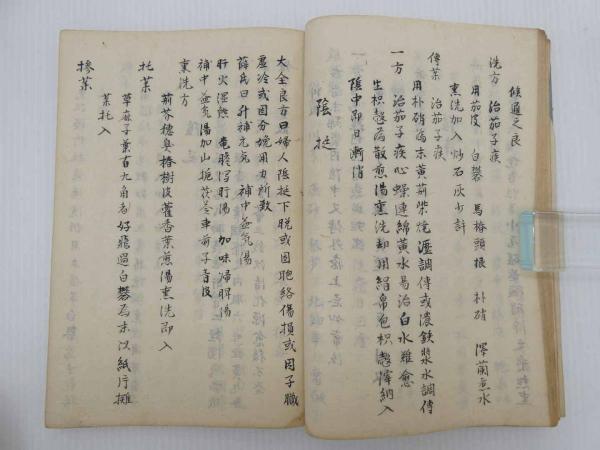 候邏之良
洗方 治茄子疾
用茄皮 白礬 馬椿頭根 朴硝 澤蘭煎水
熏洗加入炒石灰少許
傳藥 治茄子疾
用朴硝為末黃荊柴燒瀝調傳或濃鉄漿水調傳
一方 治茄子疾心蟬連綿黃水易治白水難愈
生枳殼為散煎湯熏洗却用絹帛包枳殼滓納入
陰中即日漸消
陰挺
大全良方曰婦人陰挺下脫或因胞絡傷損或因子臟
虛冷或因分娩用力所致
薛氏曰升補元氣 補中益氣湯
肝火湿熱 竜膽瀉肝湯 加味歸脾湯
補中益氣湯加山梔茯苓車前子青皮
熏洗方
荊芥穗臭椿樹皮藿香葉煎湯熏洗即入
托藥
草麻子葉有九角者好飛過白礬為末以紙片攤
藥托入
摻藥